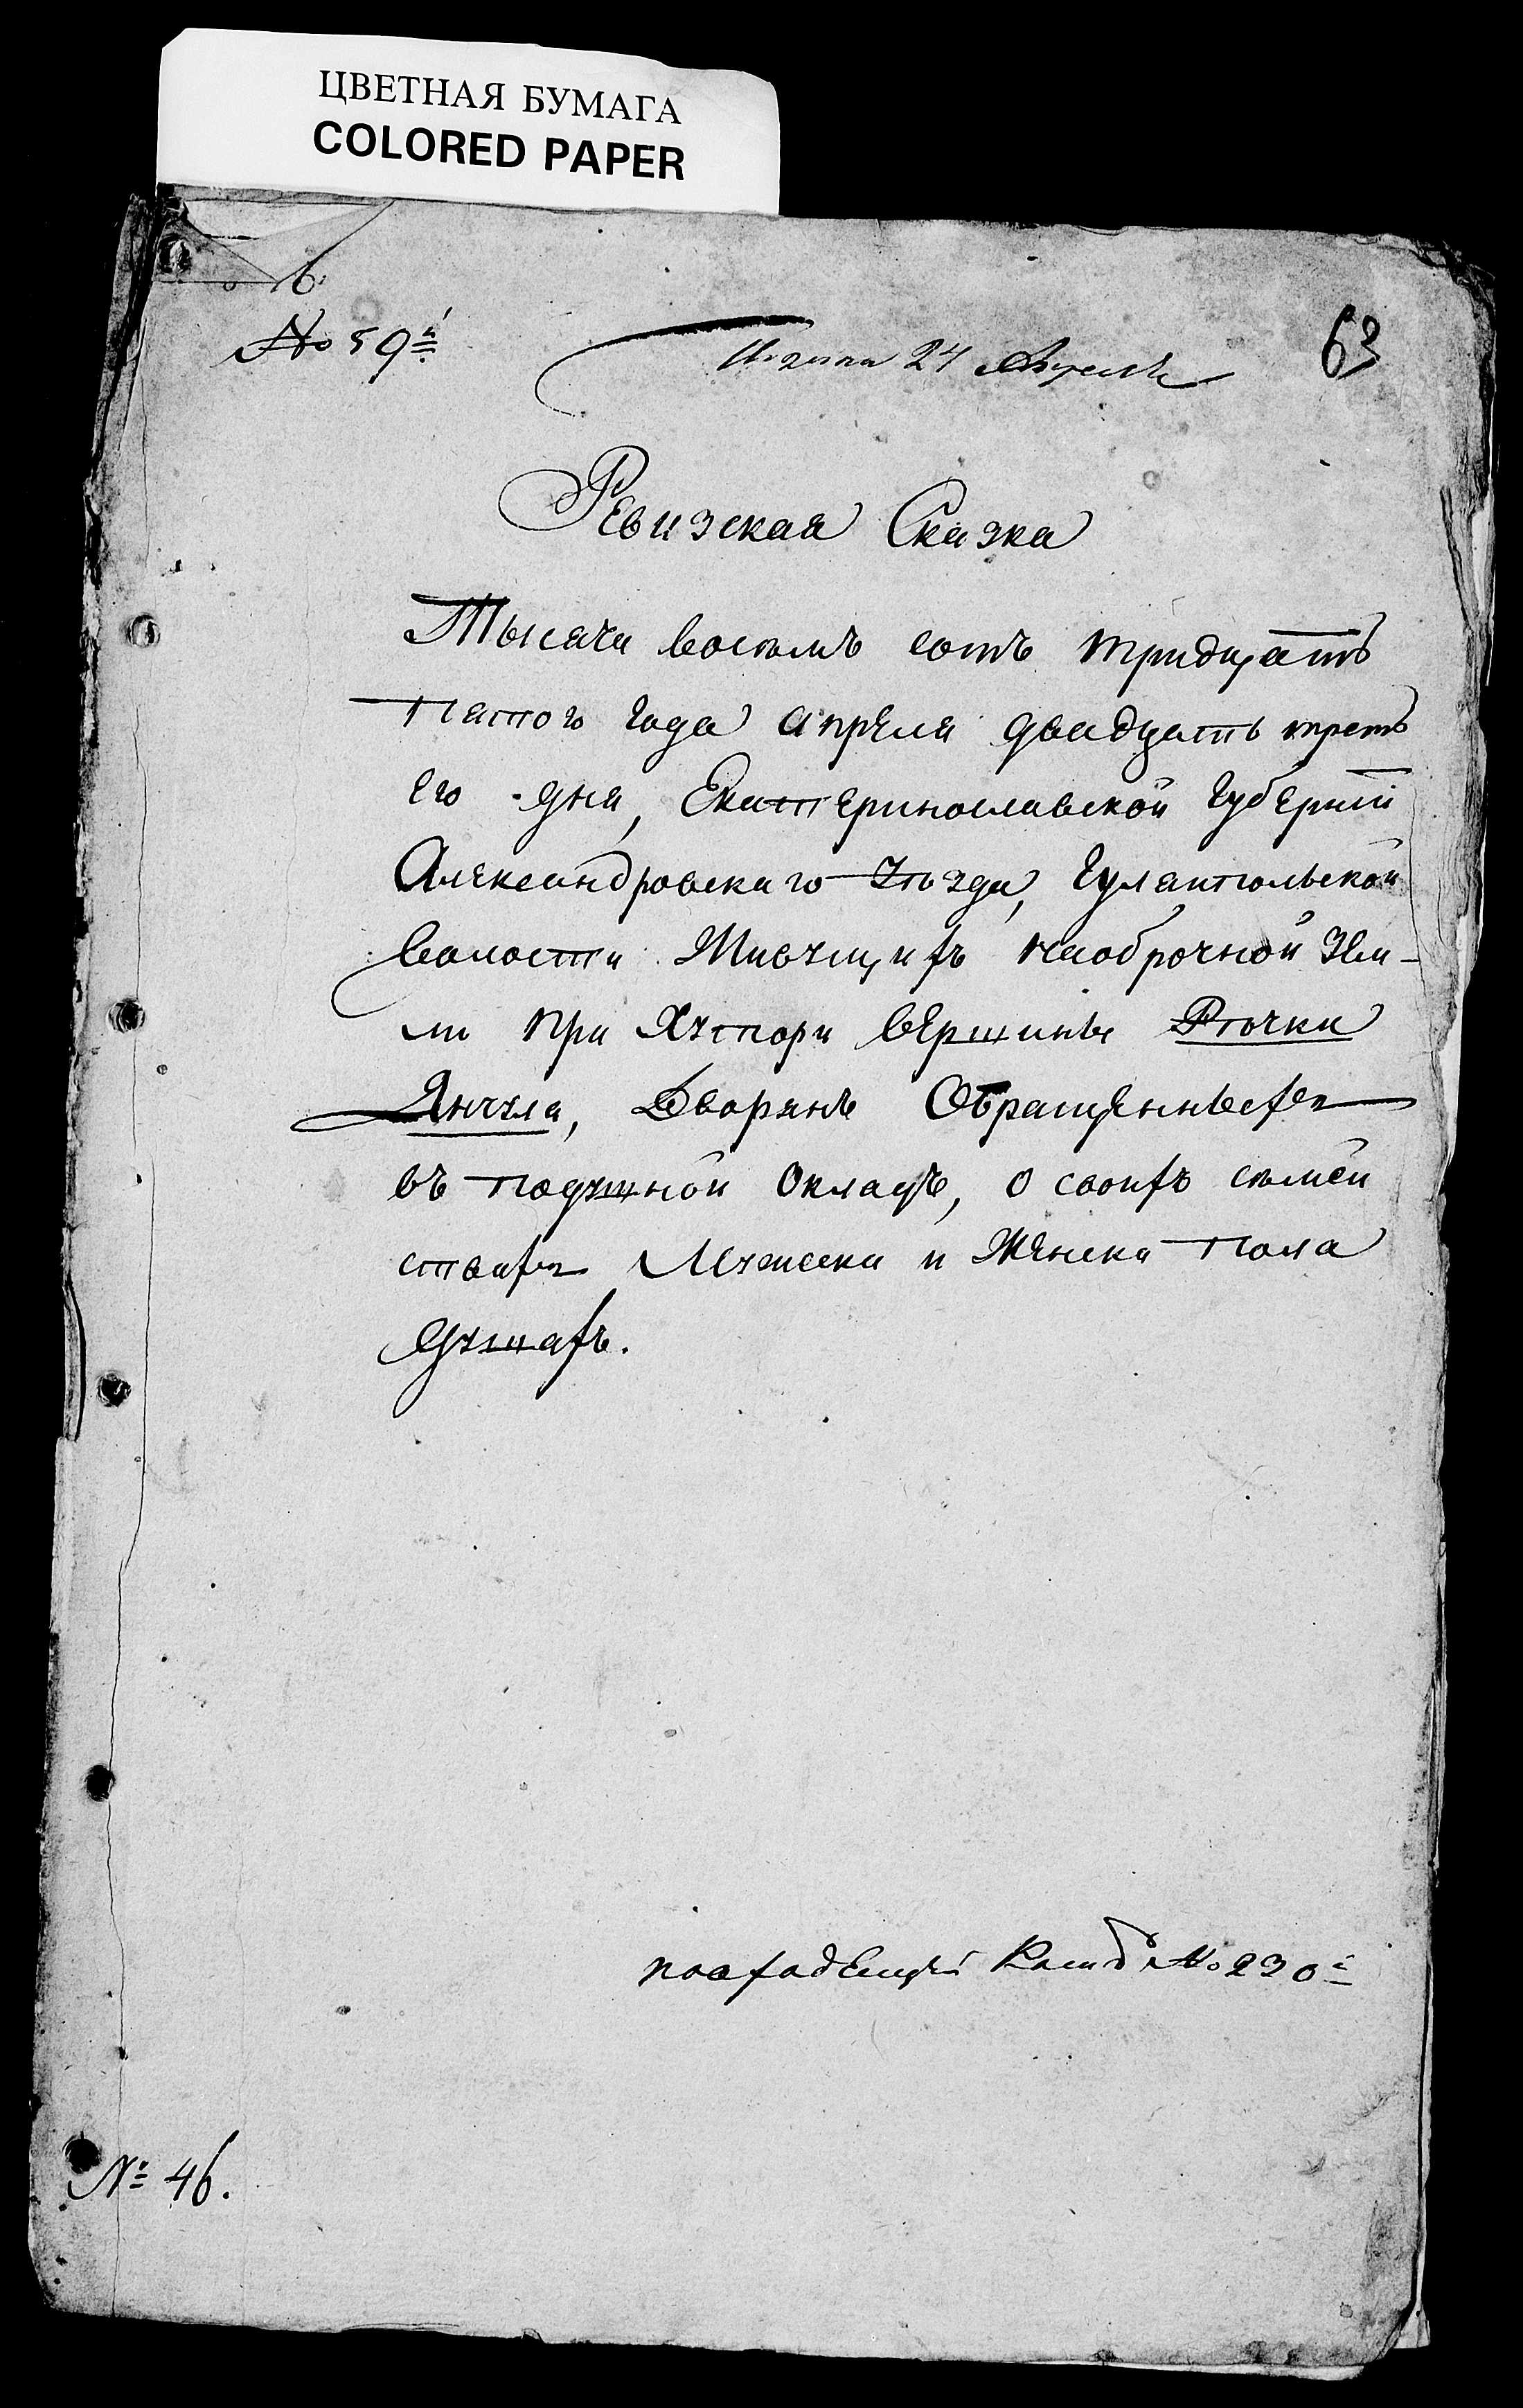 ЦВЕТНАЯ БУМАГА
COLORED PAPER
№ 59й
24 Апреля
63
Ревизская Сказка
Тысяча восемь сотъ тридцать
пятого года апреля двадцать треть
его дня, Екатеринославской губерніи
Александровскаго уѣзда, Гуляйпольской
волости Живущихъ на оброчной Зем-
ли при Хуторѣ вершине Рѣчки
Янчула, Дворянъ Обращенныхъ
въ подушной окладъ, о своихъ съмей
ствахъ Мужеска и Женска пола
душахъ.
по входящей № 230й
№ 46.